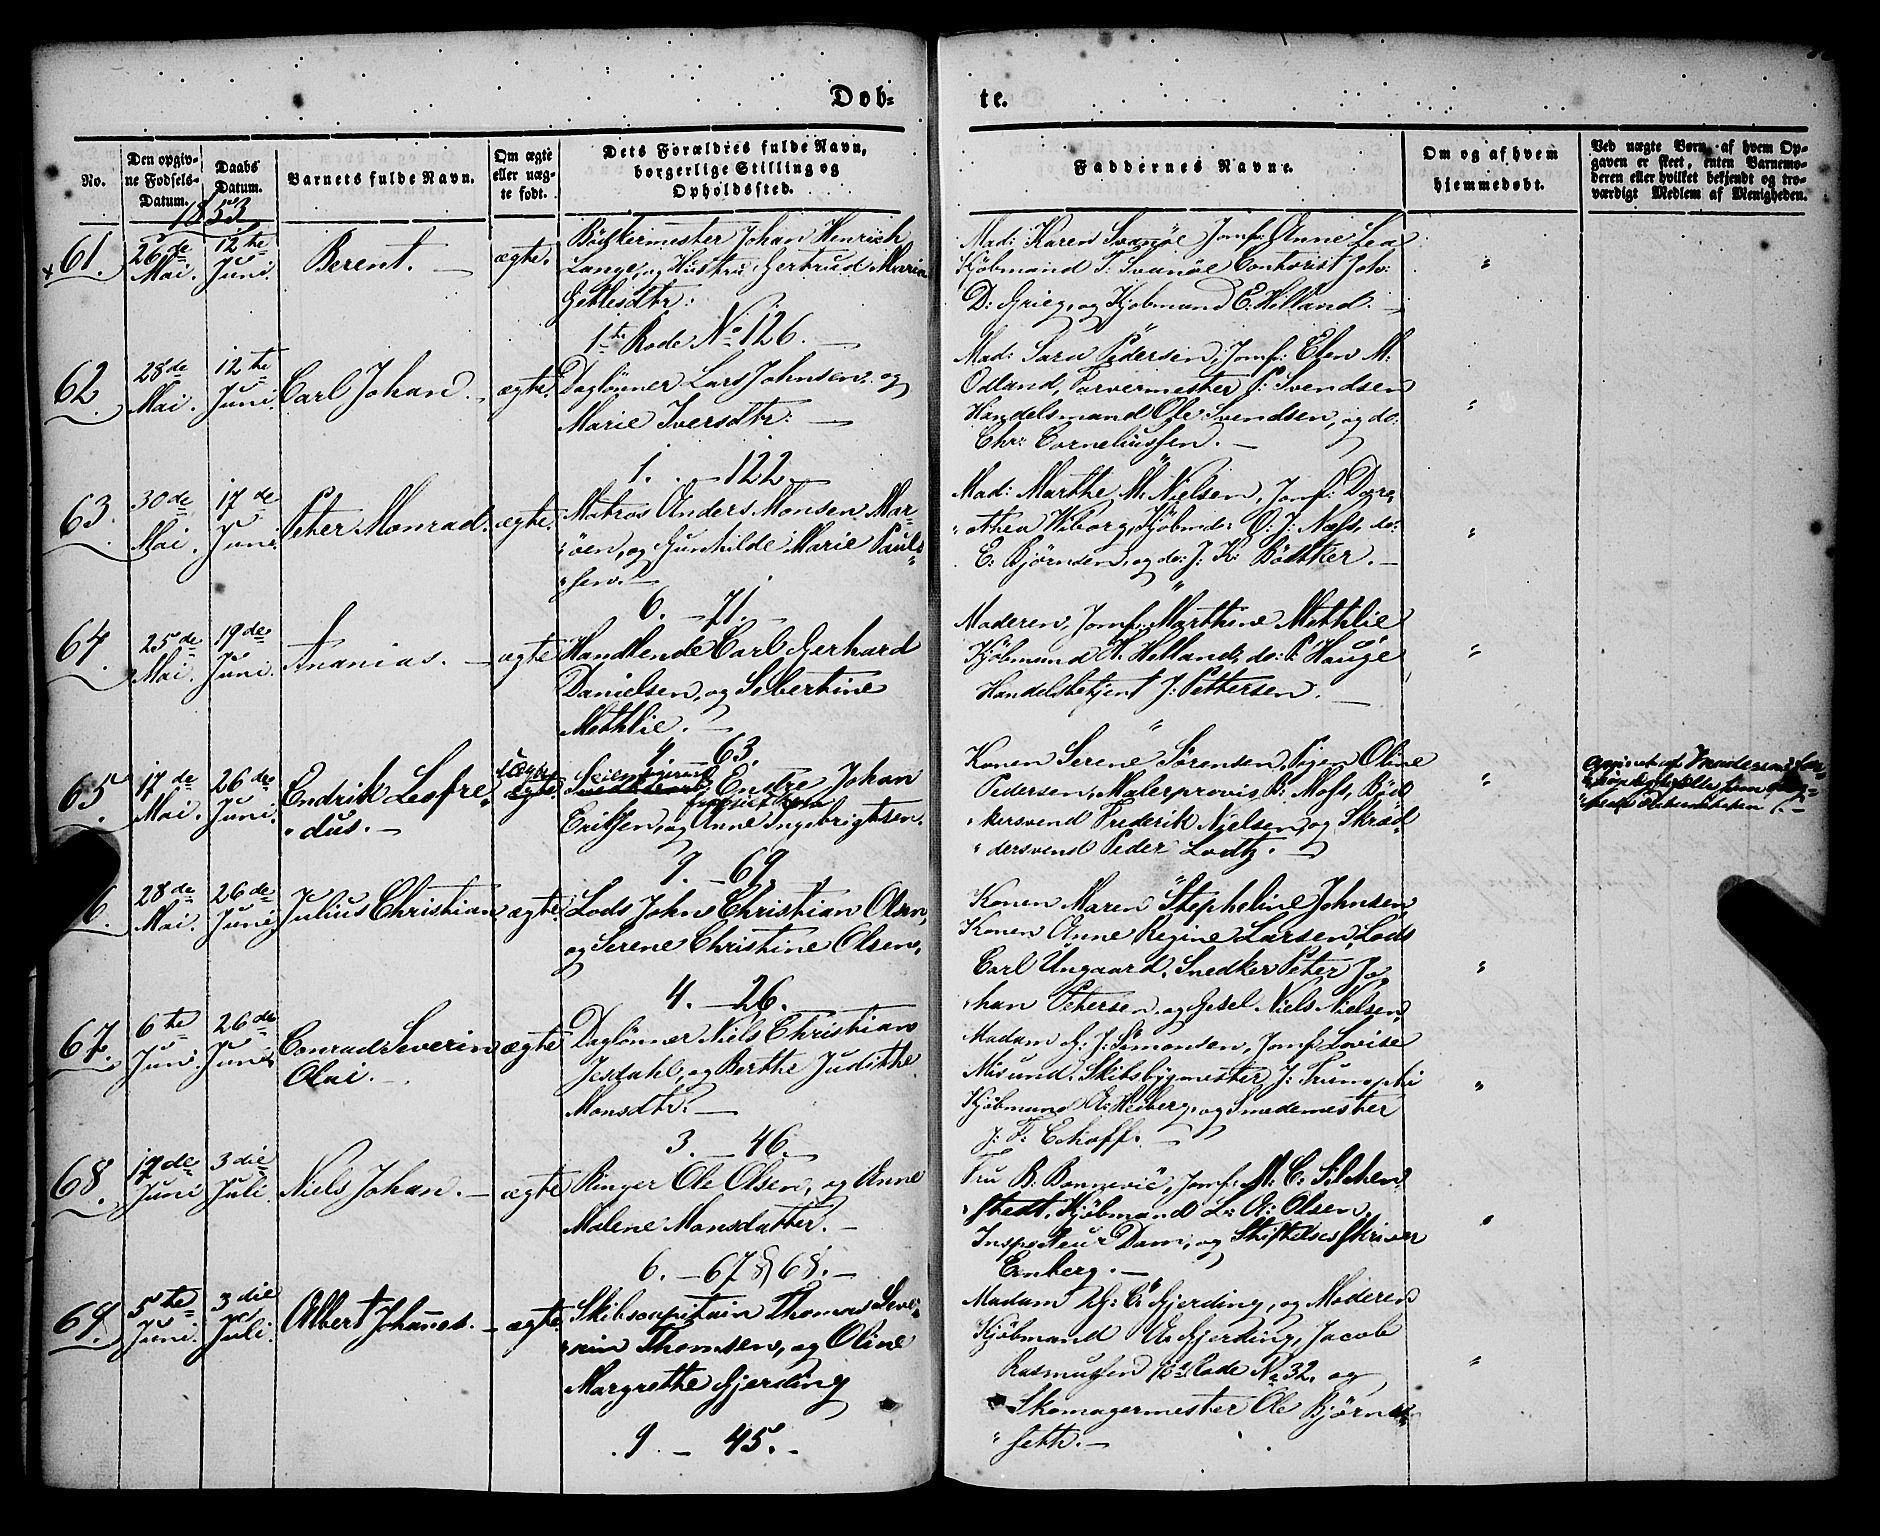 Dob=
te.
No.
Den opgiv-
ne Fødsels-
Datum.
Daabs
Datum.
Barnets fulde Navn.
Om ægte
eller uæg-
te født.
Dets Forældres fulde Navn,
borgerlige Stilling og
Opholdssted.
Faddernes Navne.
Om og af hvem
hjemmedøbt.
Ved uægte Børn, af hvem Op-
gaven er skeet, enten Barnemo-
deren eller hvilket bekjendt og tro-
værdigt Medlem af Menigheden.
1853
61.
26de
Mai.
12te
Juni.
Berent.
ægte.
Bödkermester Johan Henrich
Lange, og Hustru Gertrud Maria
Gitlesdtr:
1te Rode No 126.
Mad: Karen Svanöe, Jomf: Anne Lea
Kjöbmand J: Svanöe Contorist Joh:
D: Grieg, og Kjöbmand E. Hilland.
"
62.
28de
Mai.
12te
Juni.
Carl Johan.
ægte.
Daglönner Lars Johnsen, og
Marie Iversdtr:
1. — 122.
Mad: Sara Pedersen, Jomf: Elen M:
Odland, Farvermester P: Svendsen
Handelsmand Ole Svendsen, og do:
Chr: Corneliussen.
"
63.
30de
Mai.
17de
Juni.
Peter Monrad.
ægte.
Matros Anders Monsen Mar=
öen, og Gunhilde Marie Pauls=
sen.
6. — 71.
Mad: Marthe M. Nielsen, Jomf: Doro,
othea Wiborg, Kjöbmd: O. J. Næss, do:
E: Björnsen, og do: J. K: Bödtker.
"
64.
25de
Mai.
19de
Juni.
Ananias.
ægte
Handlende Carl Gerhard
Danielsen, og Sibertine
Methlie.
4. — 63.
Moderen, Jomf: Marthine Methlie
Kjöbmand A. Helland, do: P. Hauge,
Handelsbetjent J. Pettersen.
"
65.
17de
Mai.
26de
Juni.
Endrik Lesfre=
dus.
Endre Johan
Erikssen, og Anne Ingebrigtsen.
9. — 69.
Konen Serene Sörensen, Pigen Oline
Pedersen, Malerprovis. P: Moss, Böd
kersvend Frederik Nielsen, og Skræd
dersvend Peder Lodtz.
"
6.
28de
Mai.
26de
Juni
Julius Christian
ægte
Lods John Christian Olsen,
og Serene Christine Olsen.
4. — 26.
Konen Maren Stepheline Johnsen,
Konen Anne Regine Larsen, Lods
Carl Ungaard, Snedker Peter Jo
han Petersen, og Gesel Niels Nielsen.
"
67.
6te
Jun.
26de
Juni.
Conrad Severin
Olai.
ægte
Daglönner Niels Christian
Jesdahl, og Berthe Judithe
Monsdtr:
3. — 46.
Madam G: J: Simonsen, Jomf. Lovise
Misund, Skibsbygmester J. Trumphi
Kjöbmand A: Heiberg, og Smedemester
J: F: Ekhoff.
"
68.
17de
Juni
3die
Juli.
Niels Johan.
ægte
Ringer Ole Olsen, og Anne
Malene Monsdatter.
6. — 67 & 68.
Fru B: Bonnevie, Jomf. M. C. Silchen
stedt, Kjöbmand L: A: Olsen,
Inspecteur Dam, og Stiftelsesskriver
Enberg.
"
69.
5te
Juni.
3die
Juli.
Albert Johannes.
ægte.
Skibscapitain Thomas Seve=
rin Thomsen, og Oline
Margrethe Gjerding
9. — 45.
Madam G: C: Gjerding, og Moderen
Kjöbmand A. Gjerding, Jacob
Rasmussen Rode No 32, og
Skomagermester Ole Björne
seth.
"